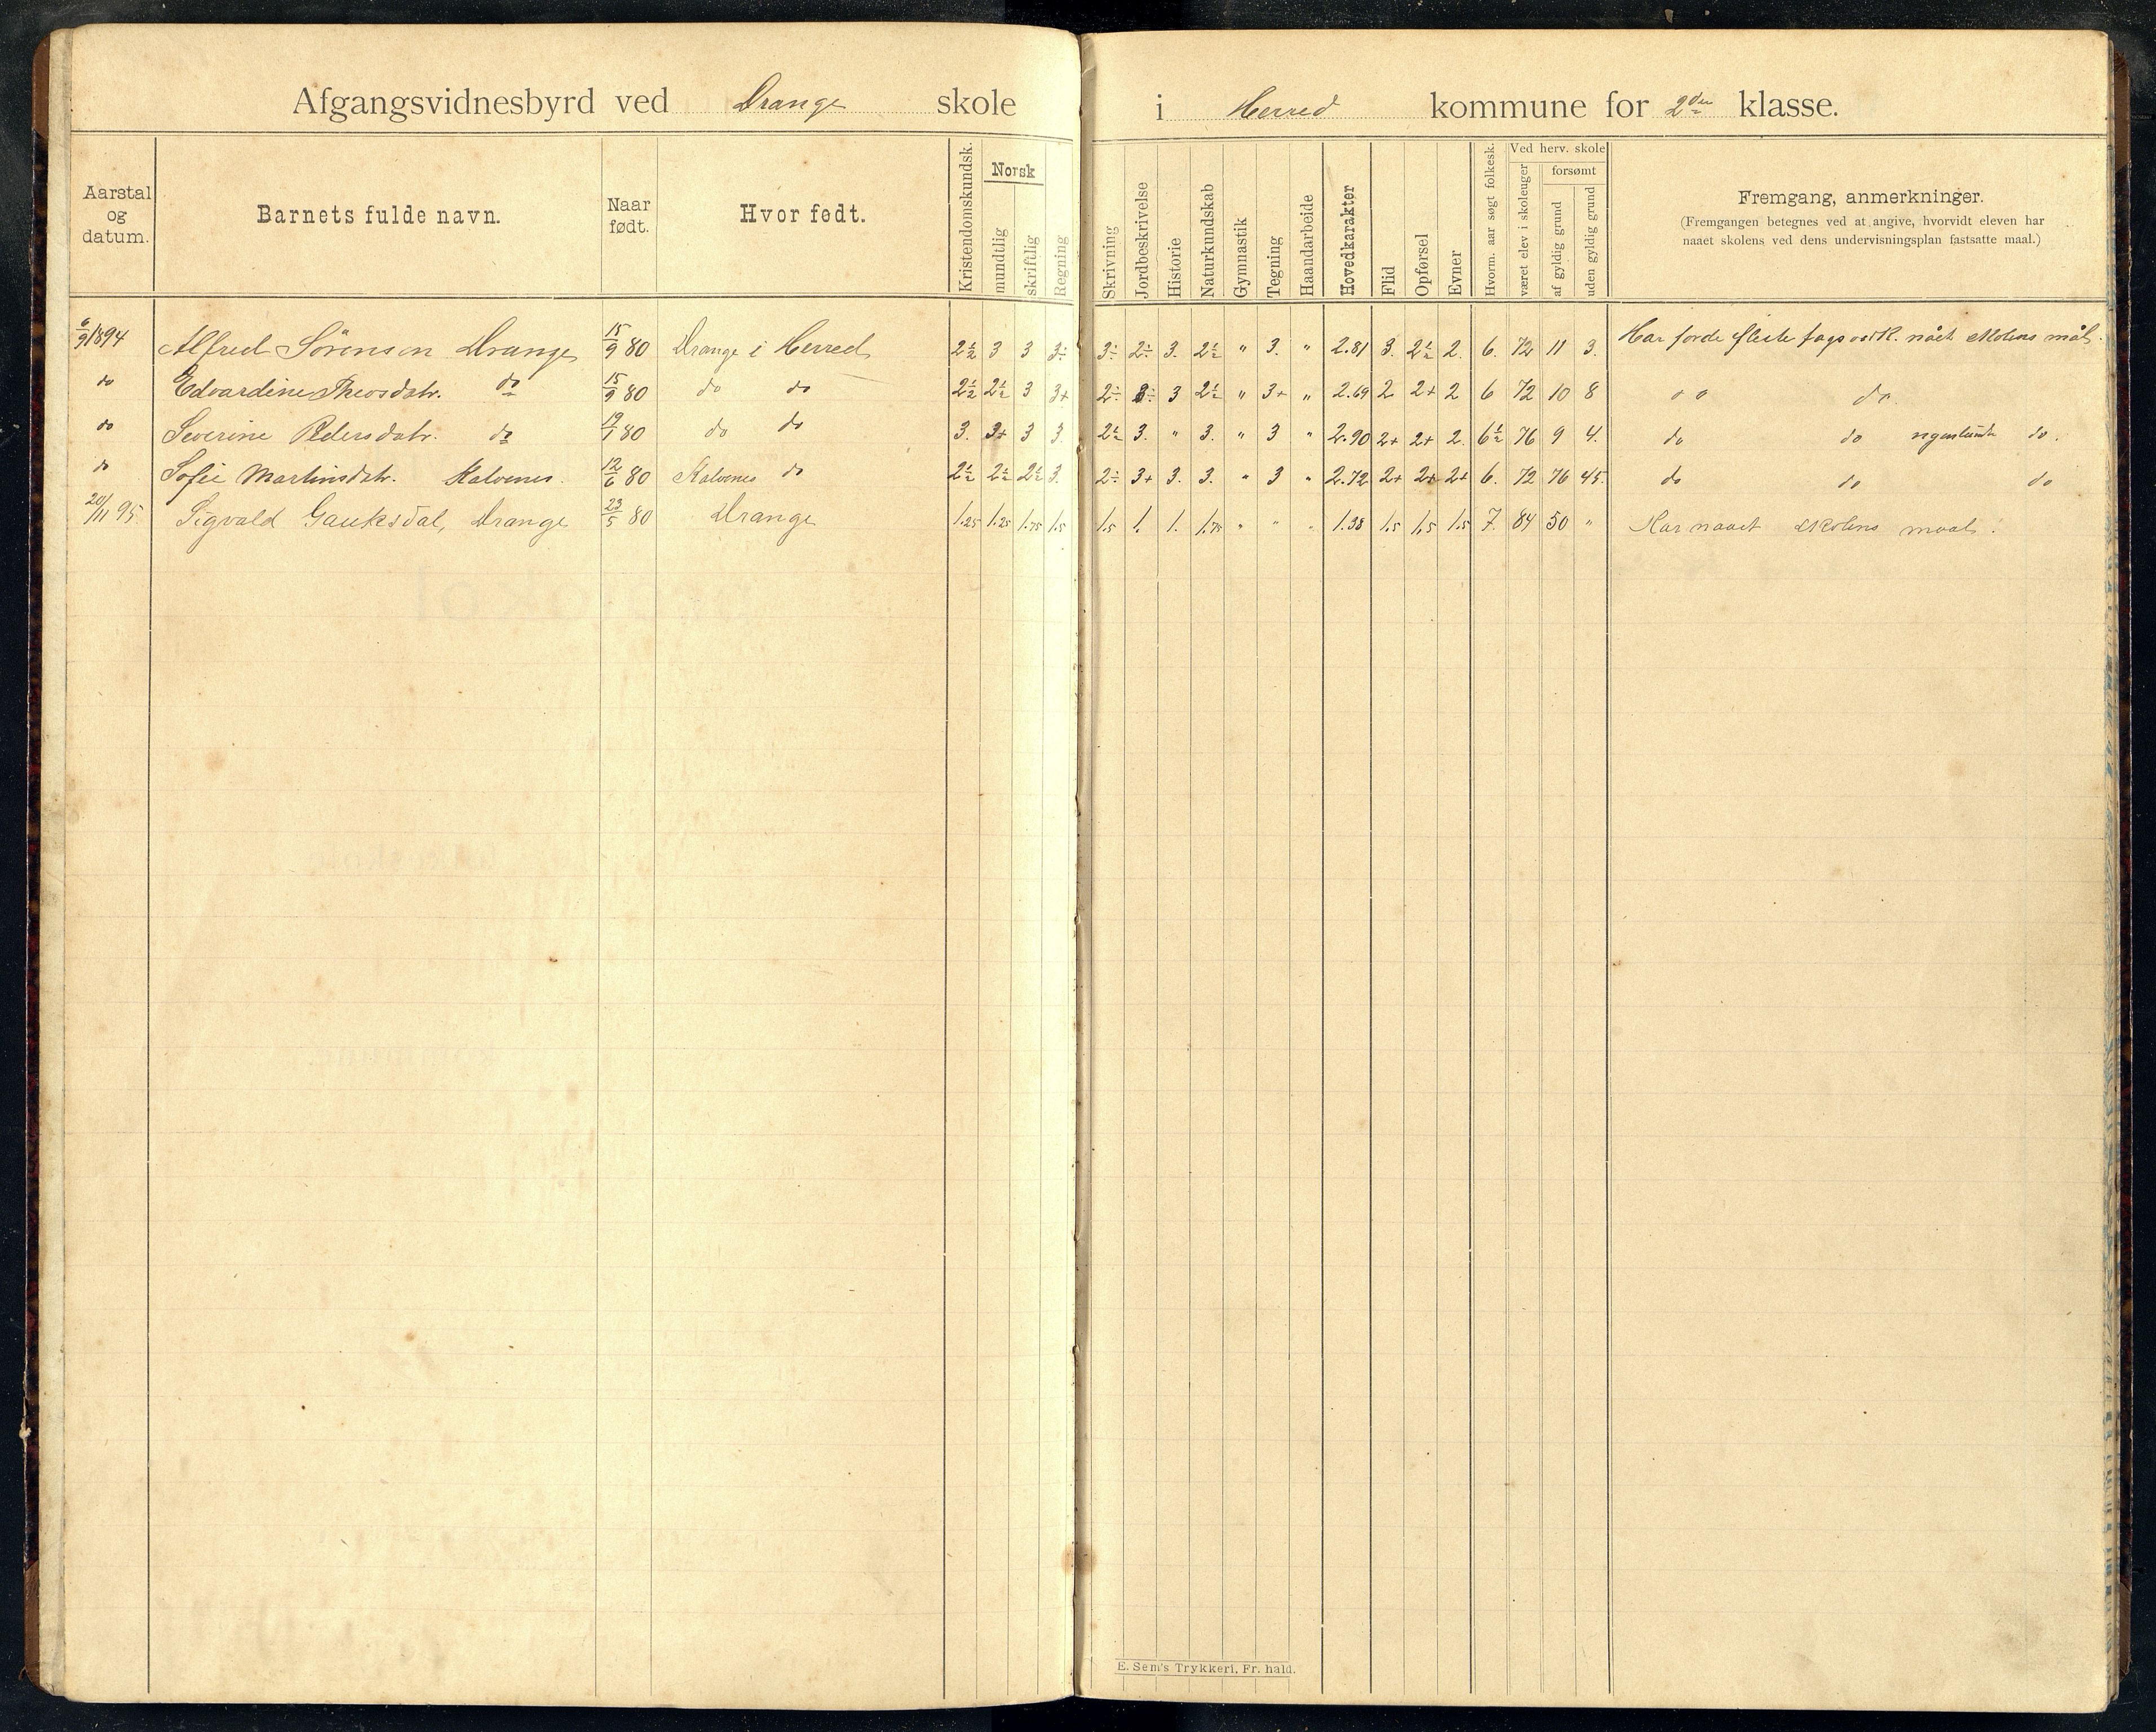 Afgangsvidnesbyrd ved Drange skole i Herred kommune for 2den klasse.
Aarstal og datum.
Barnets fulde navn.
Naar født.
Hvor født.
Kristendomskundsk.
Norsk
mundtlig
skriftlig
Regning
Skrivning
Jordbeskrivelse
Historie
Naturkundskab
Gymnastik
Tegning
Haandarbeide
Hovedkarakter
Flid
Opførsel
Evner
Hvorm. aar søgt folkesk.
Ved herv. skole
været elev i skoleuger
forsømt
af gyldig grund
uden gyldig grund
Fremgang, anmerkninger.
(Fremgangen betegnes ved at angive, hvorvidt eleven har
naaet skolens ved dens undervisningsplan fastsatte maal.)
6/9 1894 Alfred Sörensen Drange 15/9 80 Drange i Herred 2½ 3 3 3÷ 3÷ 2÷ 3. 2½ " 3. " 2.81 3. 2½ 2. 6. 72 11 3. Har for de fleste fags nået skolens mål.
do Edvardine Theosdatr. do 15/9 80 do do 2½ 2½ 3 3+ 2÷ 3÷ 3 2½ " 3+ " 2.69 2 2+ 2 6 72 10 8 do do
do Severine Pedersdatr. do 19/1 80 do do 3. 3+ 3 3. 2½ 3. " 3. " 3 " 2.90 2+ 2+ 2. 6½ 76 9 4. do do do.
do Sofie Martinsdtr. Kalvenes. 12/6 80 Kalvenes do 2½ 2½ 2½ 3. 2÷ 3+ 3. 3. " 3 " 2.72 2+ 2+ 2+ 6. 72 76 45. do do do
20/11 95. Sigvald Gauksdal, Drange 23/5 80 Drange 1.25 1.25 1.75 1.5 1.5 1. 1. 1.75 " " " 1.38 1.5 1.5 1.5 7. 84 50 " Har naaet skolens maal.
E. Sem's Trykkeri, Fr. hald.